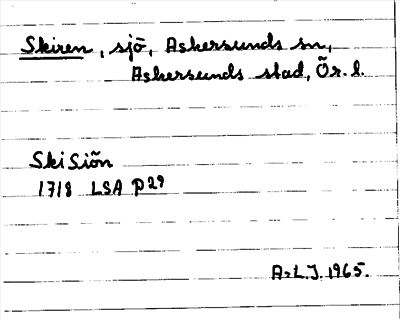 Skiren, sjö, Askersunds sn,
Askersunds stad, Ör. l.
Ski Siön
1718 LSA P29
A-L.J. 1965.